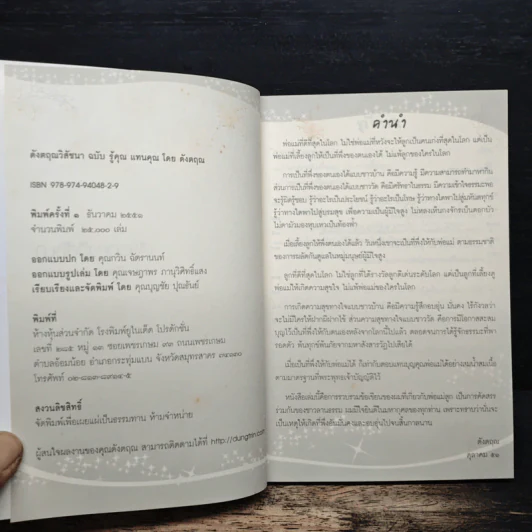 ดังตฤณวิสัชนา ฉบับ รู้คุณ แทนคุณ โดย ดังตฤณ
ISBN 978-974-94048-2-9
พิมพ์ครั้งที่ ๑ ธันวาคม ๒๕๕๑
จำนวนพิมพ์ ๒๕,๐๐๐ เล่ม
ออกแบบปก โดย คุณกวิน ฉัตรานนท์
ออกแบบรูปเล่ม โดย คุณเจษฎาพร ภานุวิศิทธิ์แสง
เรียบเรียงและจัดพิมพ์ โดย คุณบุญชัย ปุณยันต์
พิมพ์ที่
ห้างหุ้นส่วนจำกัด โรงพิมพ์ยูไนเต็ด โปรดักชั่น
เลขที่ ๒๘๕ หมู่ ๑๓ ซอยเพชรเกษม ถนนเพชรเกษม
ตำบลอ้อมน้อย อำเภอกระทุ่มแบน จังหวัดสมุทรสาคร
โทรศัพท์
สงวนลิขสิทธิ์
จัดพิมพ์เพื่อเผยแผ่เป็นธรรมทาน ห้ามจำหน่าย
ผู้สนใจผลงานของคุณดังตฤณ สามารถติดตามได้ที่ http://dungtrin.com
คำนำ
พ่อแม่ที่ดีที่สุดในโลก ไม่ใช่พ่อแม่ที่หวังจะให้ลูกเป็นคนเก่งที่สุดในโลก แต่เป็น
พ่อแม่ที่เลี้ยงลูกให้เป็นที่พึ่งของตนเองได้ ไม่แพ้ลูกของใครในโลก
การเป็นที่พึ่งของตนเองได้แบบชาวบ้าน คือมีความรู้ มีความสามารถทำมาหากิน
ส่วนการเป็นที่พึ่งของตนเองได้แบบชาววัด คือมีศรัทธาในธรรม มีความเข้าใจธรรมะพอ
จะรู้ผิดรู้ชอบ รู้ว่าอะไรเป็นประโยชน์ รู้ว่าอะไรเป็นโทษ รู้ว่าทางใดพาไปสู่มหันตทุกข์
รู้ว่าทางใดพาไปสู่บรมสุข
เมื่อเลี้ยงลูกให้พึ่งตนเองได้แล้ว วันหนึ่งเขาจะเป็นที่พึ่งให้กับพ่อแม่ ตามธรรมชาติ
ของการผลัดกันดูแลในหมู่มนุษย์ผู้มีใจสูง
ลูกที่ดีที่สุดในโลก ไม่ใช่ลูกที่ได้รางวัลลูกดีเด่นระดับโลก แต่เป็นลูกที่เลี้ยงดู
พ่อแม่ให้เกิดความสุขใจ ไม่แพ้พ่อแม่ของใครในโลก
การเกิดความสุขทางใจแบบชาวบ้าน คือมีความรู้สึกอบอุ่น มั่นคง ไร้กังวลว่า
จะไม่มีใครให้ฝากผีฝากไข้ ส่วนความสุขทางใจแบบชาววัด คือการมีโอกาสสะสม
บุญไว้เป็นที่พึ่งให้กับตนเองหลังจากโลกนี้ไปแล้ว ตลอดจนการได้รู้จักธรรมะที่พา
รอดตัว พ้นทุกข์พ้นภัยจากมหาสังสารวัฏไปเสียได้
เมื่อเป็นที่พึ่งให้กับพ่อแม่ได้ ก็เท่ากับตอบแทนบุญคุณพ่อแม่ได้อย่างสมน้ำสมเนื้อ
ตามมาตรฐานที่พระพุทธเจ้าบัญญัติไว้
หนังสือเล่มนี้คือการรวบรวมข้อเขียนของผมที่เกี่ยวกับพ่อแม่ลูก เป็นการคัดสรร
ร่วมกันของชาวลานธรรม ผมมีใจยินดีในมหากุศลของทุกท่าน เพราะทราบว่านั่นจะ
ดังตฤณ
ตุลาคม ๕๑